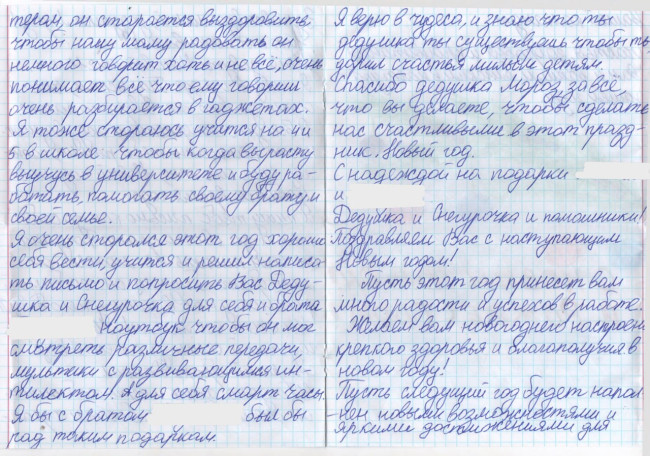 терап, он старается выздороветь
чтобы нашу маму радовать он
немного говорит хоть и не всё, очень
понимает всё что ему говорим
очень разбирается в гаджетах.
Я тоже стараюсь учится на 4 и
5 в школе чтобы когда вырасту
выучусь в университете и буду ра-
ботать, помогать своему брату и
своей семье.
Я очень старался этот год хорошо
себя вести, учится и решил написа-
ть письмо и попросить Вас Деду-
шка и Снегурочка для себя и брата
ноутбук чтобы он мог
смотреть различные передачи,
мультики с развивающимся ин-
тилектом. А для себя смарт часы.
Я бы с братом был бы
рад таким подаркам.
Я верю в чудеса, и знаю что ты
дедушка ты существуешь чтобы ты
дарил счастья милым детям
Спасибо дедушка Мороз, за всё,
что вы делаете, чтобы сделать
нас счастливыми в этот празд-
ник. Новый год.
С надеждой на подарки
и
Дедушка и Снегурочка и помошники!
Поздравляем Вас с наступающим
Новым годом!
Пусть этот год принесет вам
много радости и успехов в работе.
Желаем вам новогоднего настроени
крепкого здоровья и благополучия в
новом году!
Пусть следующий год будет напол
нен новыми возможностями и
яркими достижениями для